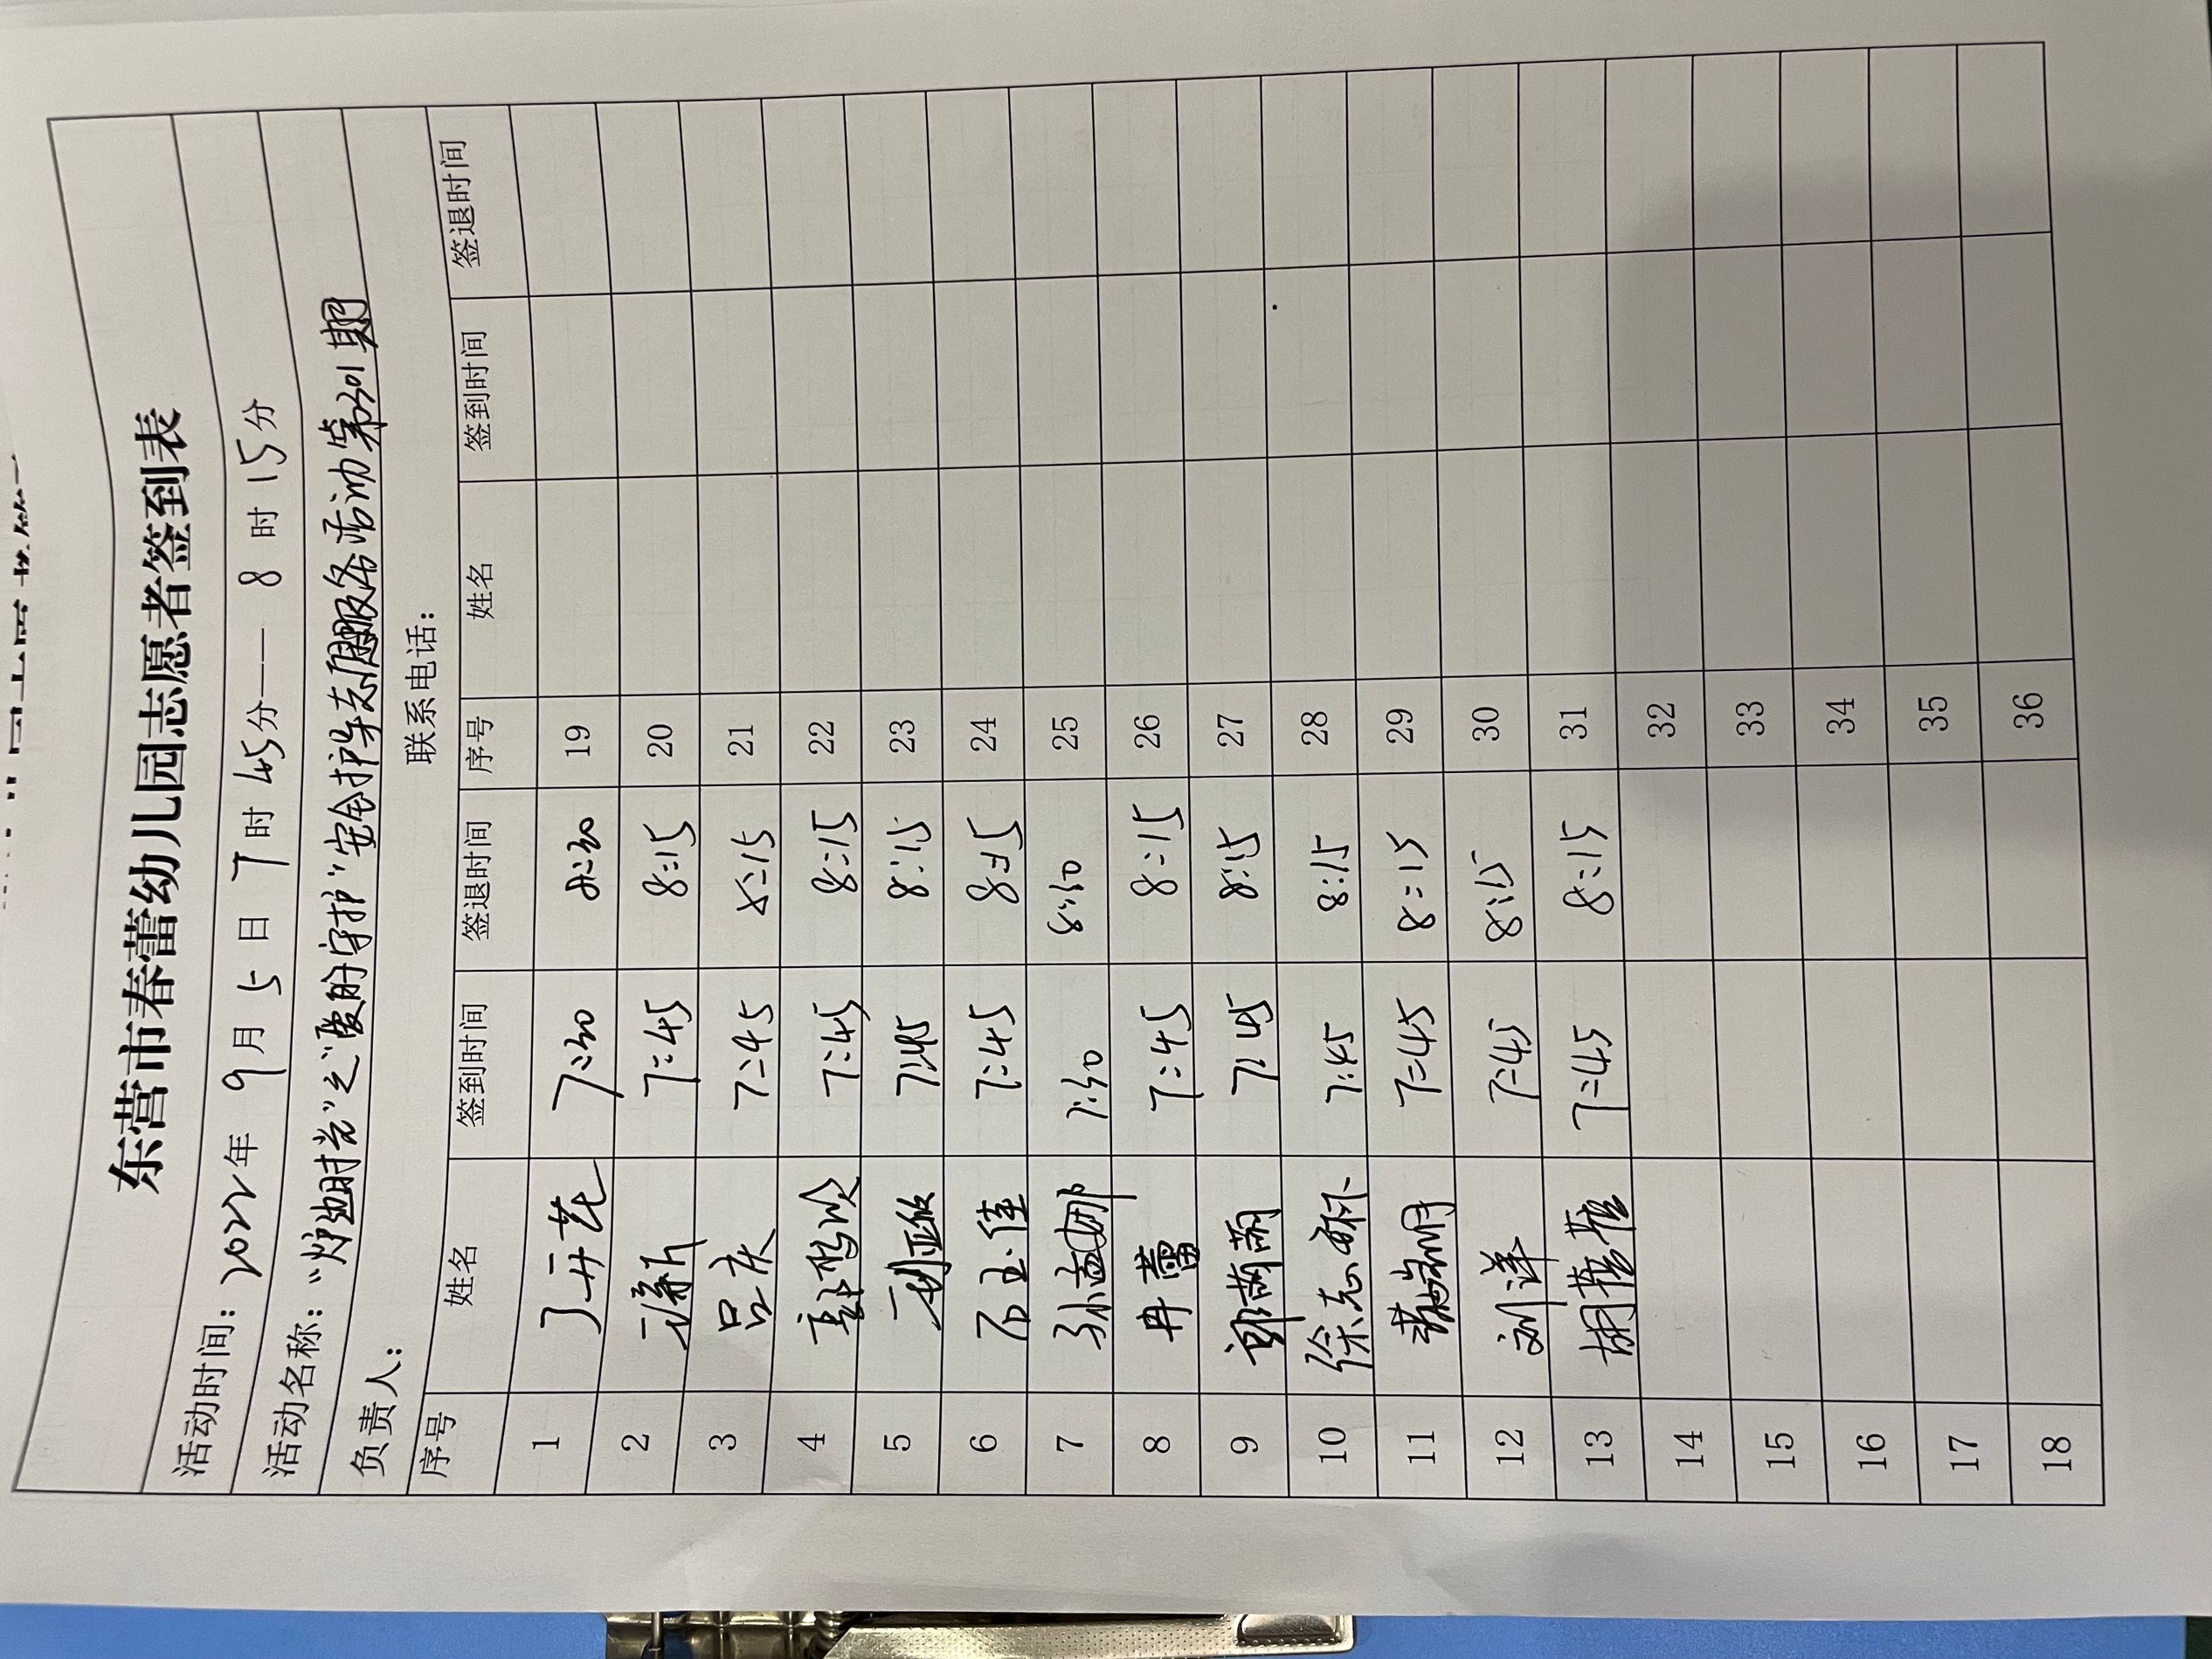 东营市春蕾幼儿园志愿者签到表
活动时间：2022年 9月 5日 7时 45分—— 8时 15分
活动名称："炉边时光"之"爱的守护"安全护学志愿服务活动第301期
负责人： 联系电话：
序号 姓名 签到时间 签退时间 序号 姓名 签到时间 签退时间
1 7:30 8:30 19
2 7:45 8:15 20
3 吕庆 7:45 8:15 21
4 7:45 8:15 22
5 7:45 8:15 23
6 石玉佳 7:45 8:15 24
7 孙孟娜 7:40 8:10 25
8 冉蕾 7:45 8:15 26
9 郭萌萌 7:45 8:15 27
10 徐志 7:45 8:15 28
11 7:45 8:15 29
12 刘洋 7:45 8:15 30
13 胡蓓蓓 7:45 8:15 31
14 32
15 33
16 34
17 35
18 36